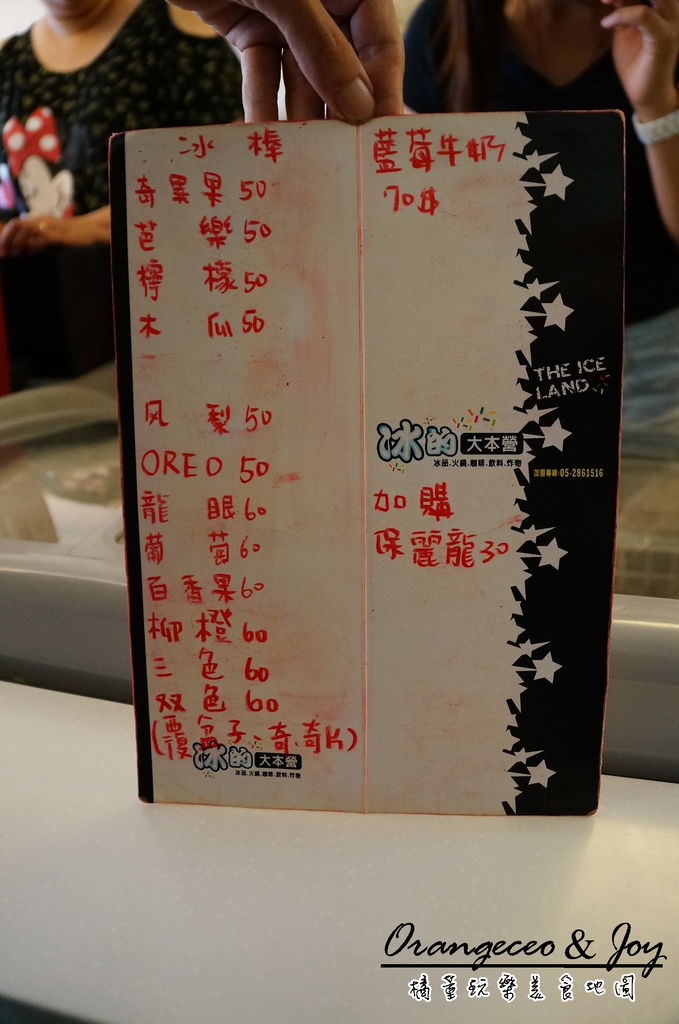 冰棒
奇異果 50
芭樂 50
檸檬 50
木瓜 50
風梨 50
OREO 50
龍眼 60
葡萄 60
百香果 60
柳橙 60
三色 60
双色 60
(覆盆子、奇、奇片)
冰的大本營
冰品.火鍋.咖啡.飲料.炸物
藍莓牛奶
70$
THE ICE
LAND
冰的大本營
冰品.火鍋.咖啡.飲料.炸物
加盟專線:05-2861516
加購
保麗龍30
Orangeceo & Joy
橘董玩樂美食地圖